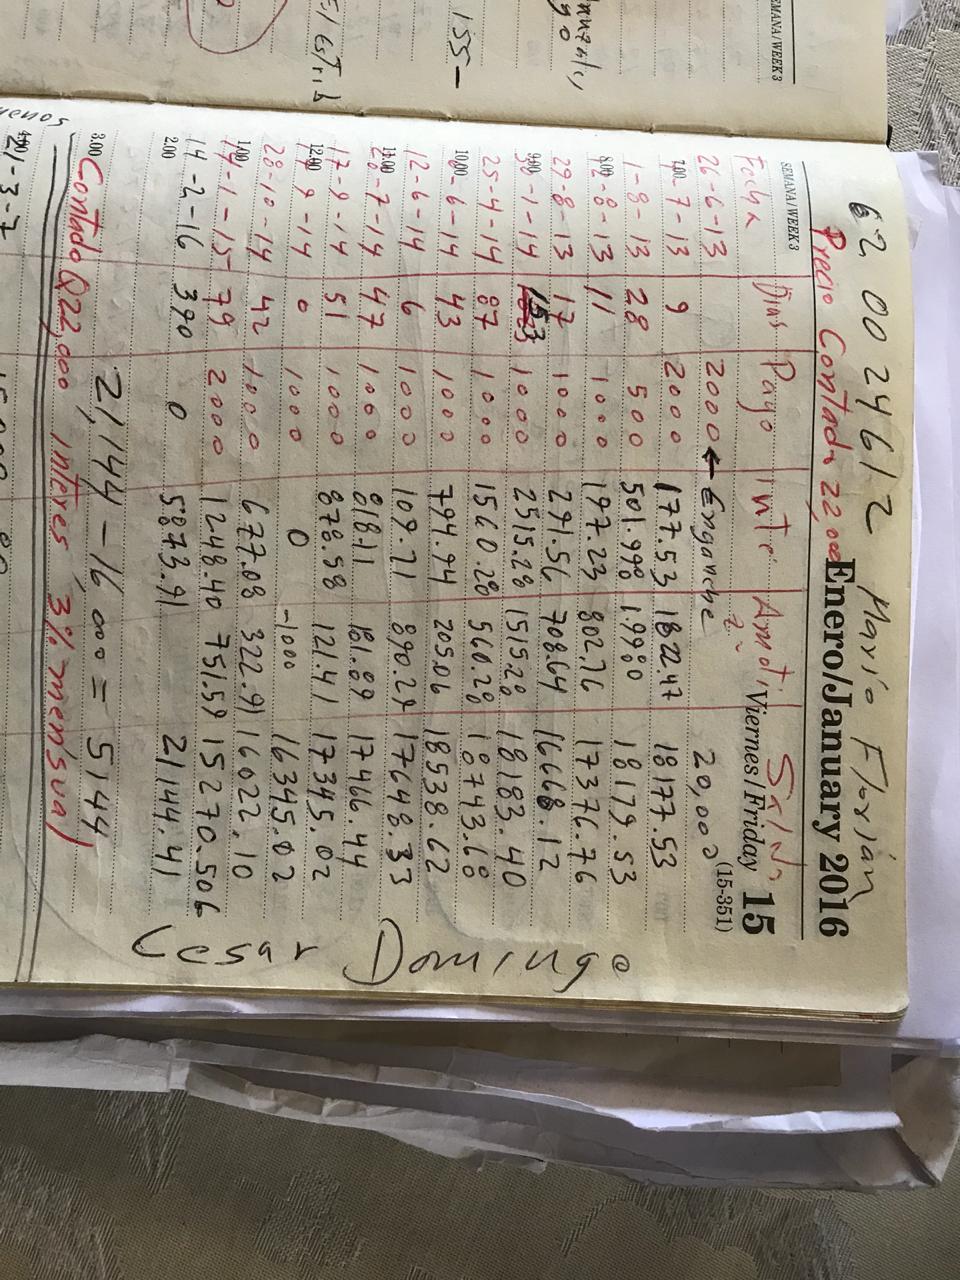 62 0024612 Mario Florián
Enero/January 2016
Precio Contado 22,000
SEMANA/WEEK 3
Viernes/Friday 15
(15-351)
Fecha Dias Pago inte Amortiz Saldo
26-6-13 2000 ← Enganche 20,000
7.00
-7-13 9 2000 177.53 1822.47 18177.53
1-8-13 28 500 501.998 1.9980 18179.53
8.00
12-8-13 11 1000 197.23 802.76 17376.76
29-8-13 17 1000 291.56 708.64 16668.12
9.00
30-1-14 153 1000 2515.28 1515.28 18183.40
25-4-14 87 1000 1560.28 560.28 18743.68
10.00
-6-14 43 1000 794.94 205.06 18538.62
12-6-14 6 1000 109.71 890.29 17648.33
11.00
28-7-14 47 1000 818.11 181.89 17466.44
17-9-14 51 1000 878.58 121.41 17345.02
12.00
17 9-14 0 1000 0 -1000 16345.02
28-10-14 42 1000 677.08 322.91 16022.10
1.00
14-1-15 79 2000 1248.40 751.59 15270.506
14-2-16 390 0 5873.91 21144.41
2.00
21,144 - 16,000 = 5144
3.00
Contado Q22,000 interes 3% mensual
4.00
21-3-7
Cesar Domingo
EMANA/WEEK 3
155-
El Estrib